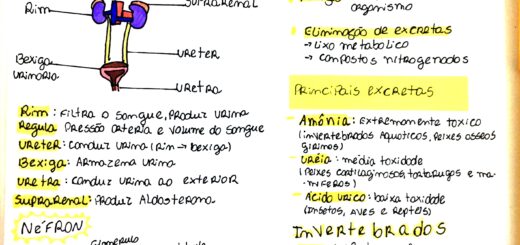 Rim
Suprarenal
ureter
Bexiga
urinoria
uretra
Rim: Filtra o sangue, Produz urina
Regula Pressão arteria e volume do sangue
ureter: conduz urina (rim → bexiga)
Bexiga: Armazena urina
uretra: conduz urina ao exterior
Suprarenal: Produz Aldosterona
NéFRON
Glomerulo
organismo
Eliminação de excretas
→ Lixo metabolico
→ compostos nitrogenados
Principais excretas
- Amônia: extremamente toxico
(invertebrados aquoticos, Peixes osseos
girinos)
- uréia: média toxidade
(Peixes cartilaginosos, tartarugas e ma-
miferos)
- Ácido urico: baixa toxidade
(Insetos, aves e repteis)
Invertebrados